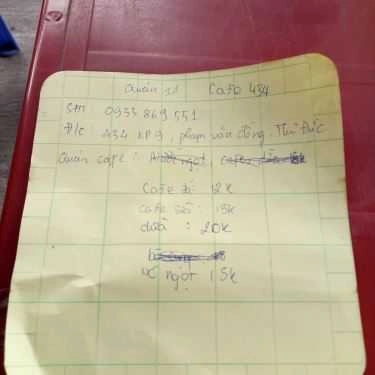 quán 11 Cafe 434
SĐT 0933 869 551
Đ/c : A34 KP9, phạm văn đồng. Thủ Đức
quán cafe :
Cafe đá 12k
cafe sữa : 15k
dừa : 20k
nc ngọt 15k